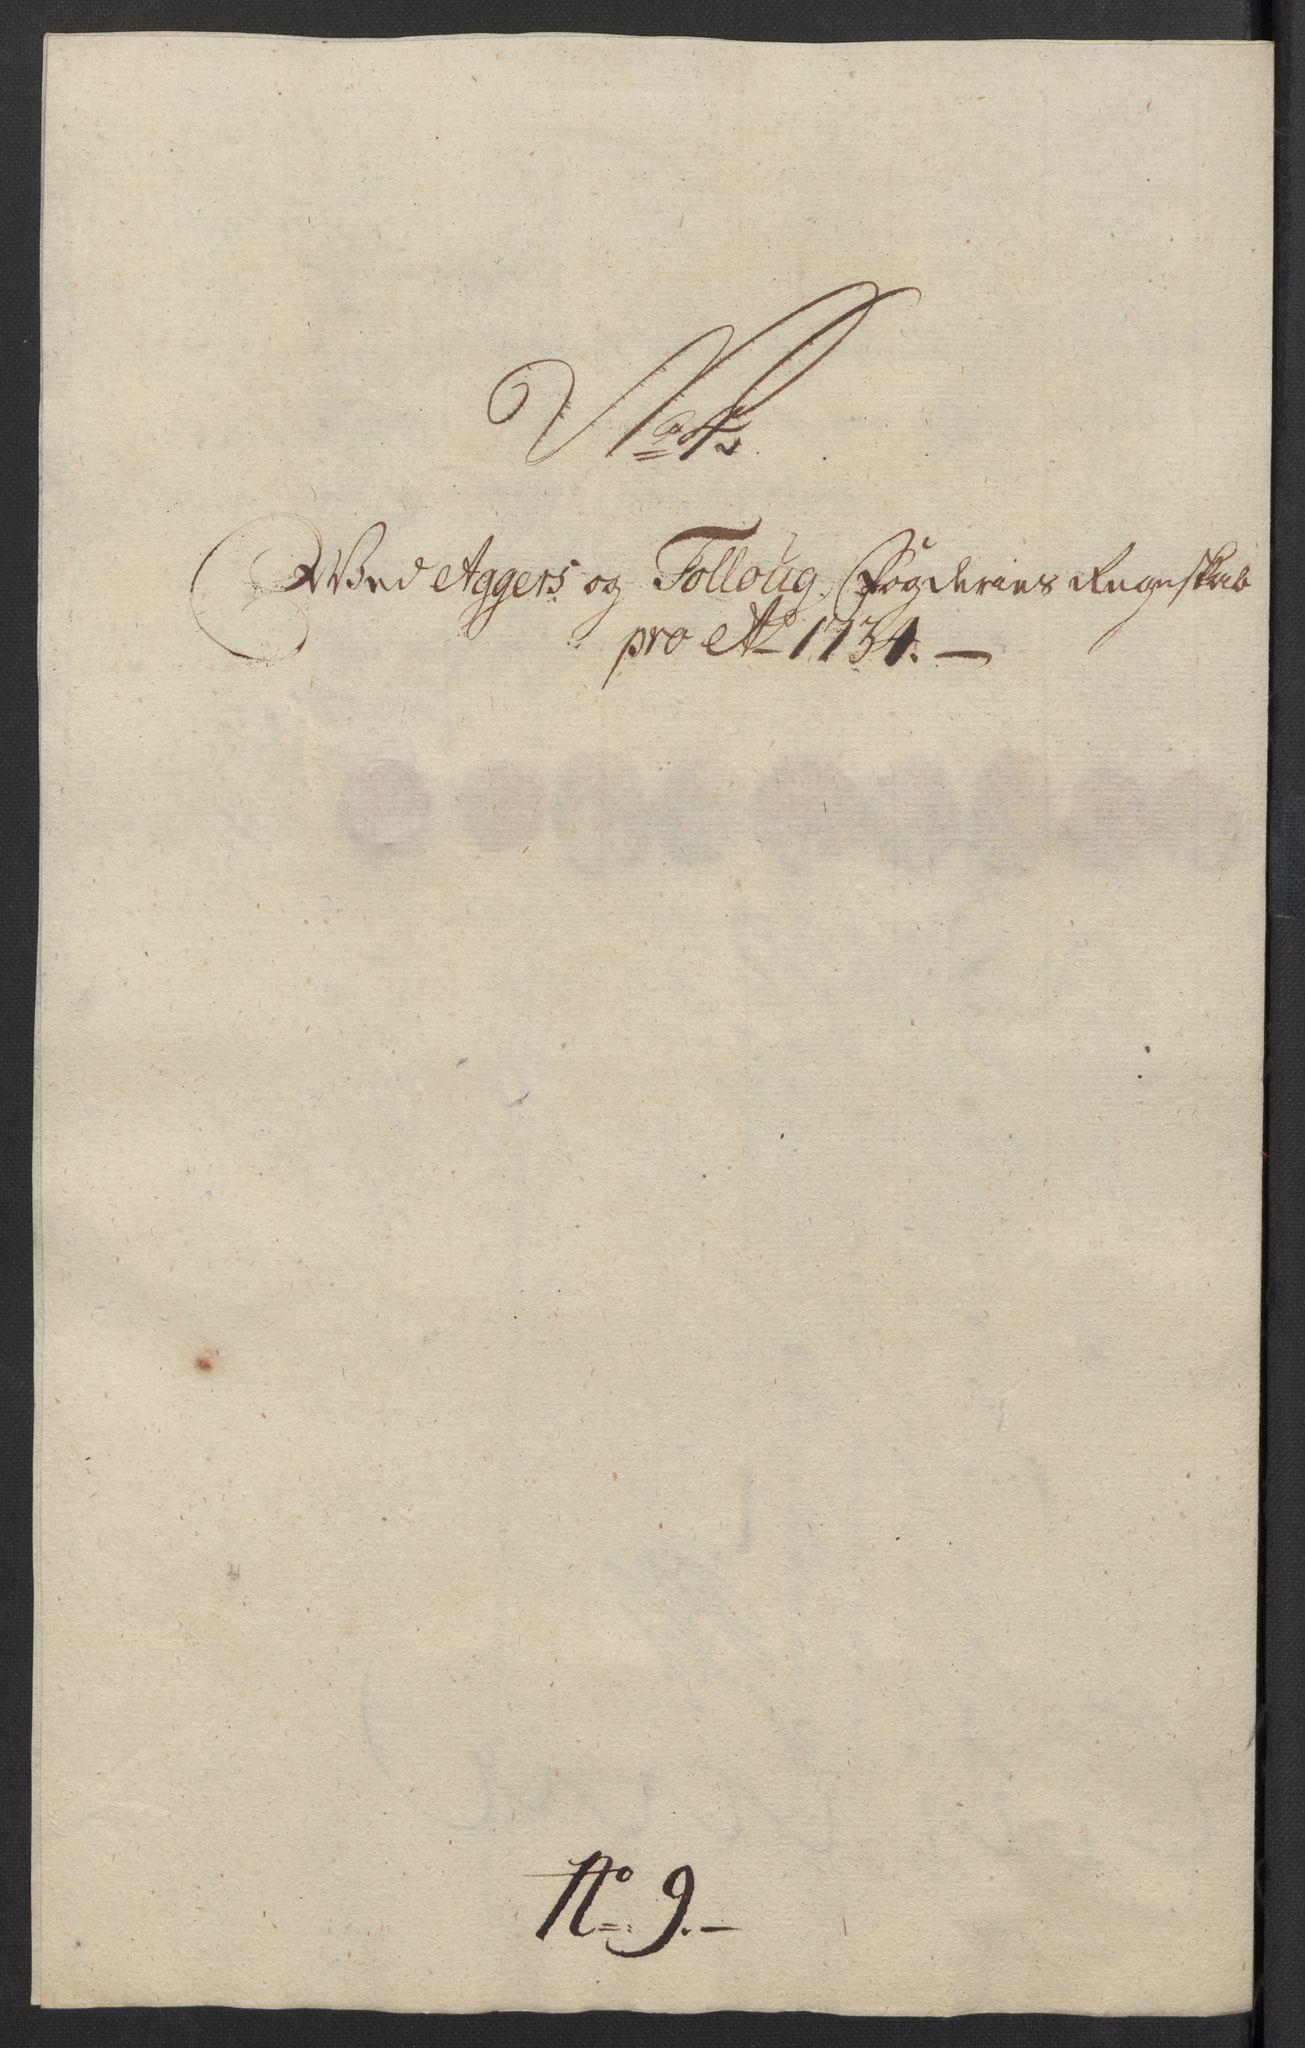 Ved Aggers og Folloug Fogderies Regnskab
pro Ao 1734.
No 9.